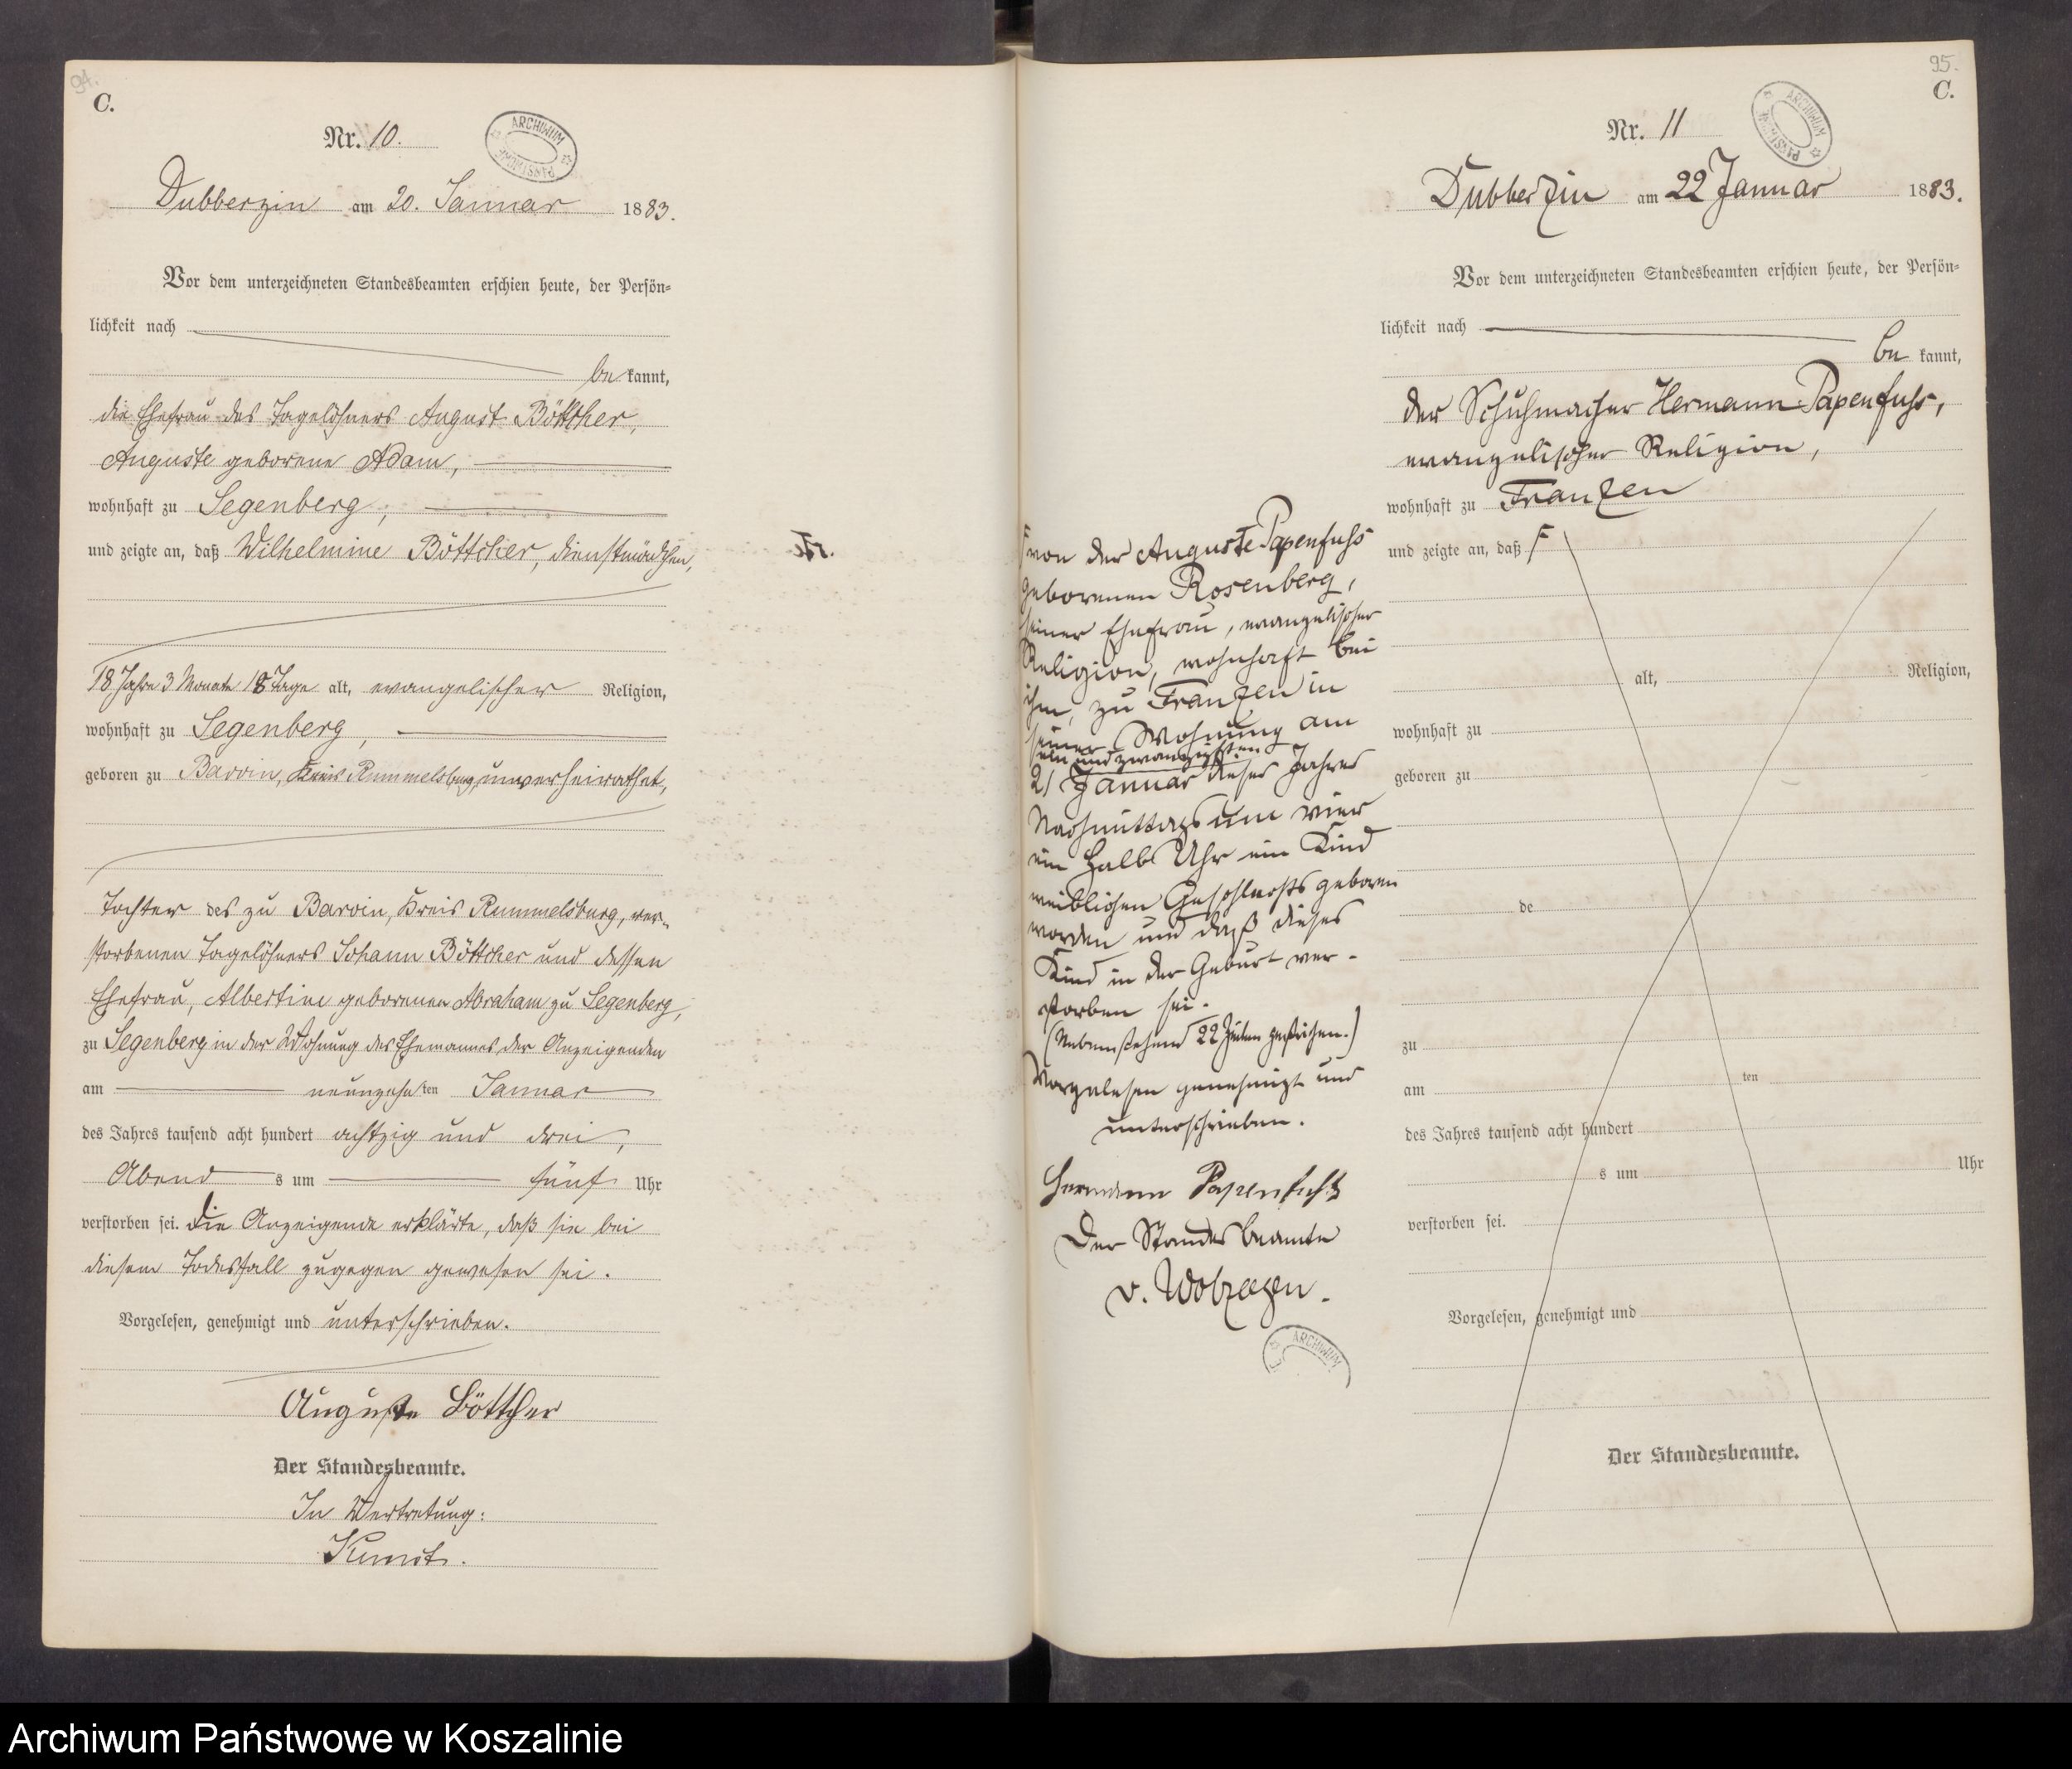 94.
C.
Nr. 10.
ARCHIWUM PAŃSTWOWE
Dubberzin am 20. Januar 1883.
Vor dem unterzeichneten Standesbeamten erschien heute, der Persön-
lichkeit nach
be kannt,
die Ehefrau des Tagelöhners August Böttcher,
Auguste geborene Adam,
wohnhaft zu Segenberg,
und zeigte an, daß Wilhelmine Böttcher, Dienstmädchen,
18 Jahre 3 Monate 18 Tage alt, evangelischer Religion,
wohnhaft zu Segenberg,
geboren zu Barvin, Kreis Rummelsburg, unverheirathet,
Tochter des zu Barvin, Kreis Rummelsburg, ver-
storbenen Tagelöhners Johann Böttcher und dessen
Ehefrau, Albertine geborenen Abraham zu Segenberg,
zu Segenberg in der Wohnung des Ehemannes der Anzeigenden
am neunzehnten Januar
des Jahres tausend acht hundert achtzig und drei,
Abend s um fünf Uhr
verstorben sei. Die Anzeigende erklärte, daß sie bei
diesem Todesfall zugegen gewesen sei.
Vorgelesen, genehmigt und unterschrieben.
Auguste Böttcher
Der Standesbeamte.
In Vertretung:
95.
C.
Nr. 11
ARCHIWUM PAŃSTWOWE
Dubberzin am 22 Januar 1883.
Vor dem unterzeichneten Standesbeamten erschien heute, der Persön-
lichkeit nach
be kannt,
der Schuhmacher Hermann Papenfuhs,
evangelischer Religion,
wohnhaft zu Franzen
und zeigte an, daß
von der Auguste Papenfuhs
geborenen Rosenberg,
seiner Ehefrau, evangelischer
Religion, wohnhaft bei
ihm, zu Franzen in
seiner Wohnung am
ein und zwanzigsten
21 Januar dieses Jahres
Nachmittags um vier
ein halb Uhr ein Kind
weiblichen Geschlechts geboren
worden und daß dieses
Kind in der Geburt ver-
storben sei.
(Nebenstehend 22 Zeilen gestrichen.)
Vorgelesen genehmigt und
unterschrieben.
Hermann Papenfuhs
Der Standesbeamte
v. Wolzogen.
ARCHIWUM
alt, Religion,
wohnhaft zu
geboren zu
de
zu
am ten
des Jahres tausend acht hundert
s um Uhr
verstorben sei.
Vorgelesen, genehmigt und
Der Standesbeamte.
Archiwum Państwowe w Koszalinie